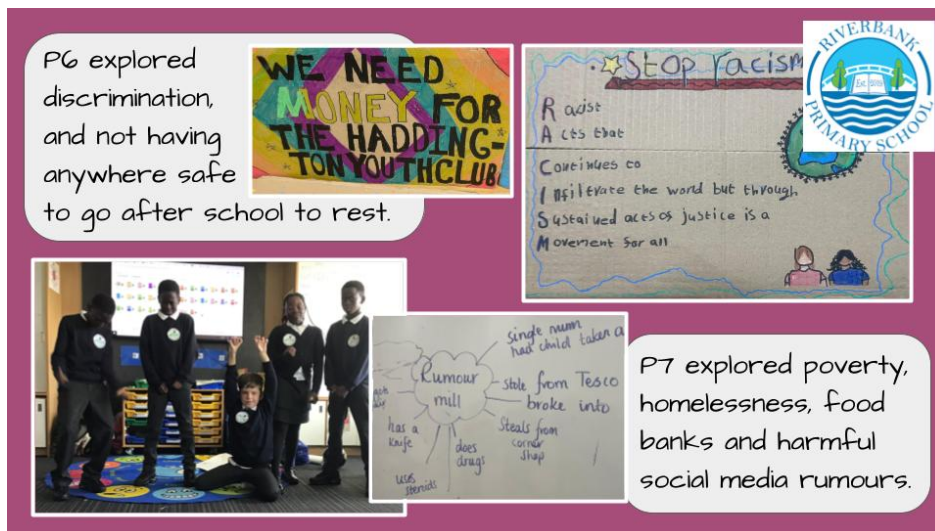 P6 explored
discrimination,
and not having
anywhere safe
to go after school to rest.
WE NEED
MONEY FOR
THE HADDING-
TON YOUTHCLUB!
Stop racism
Racist
Acts that
Continues to
Infiltrate the world but through
Sustained acts of justice is a
Movement for all
RIVERBANK
PRIMARY SCHOOL
Rumour
mill
single mum
had child taken a
stole from Tesco
broke into
Steals from
corner
shop
does
drugs
uses
steroids
has a
knife
P7 explored poverty,
homelessness, food
banks and harmful
social media rumours.